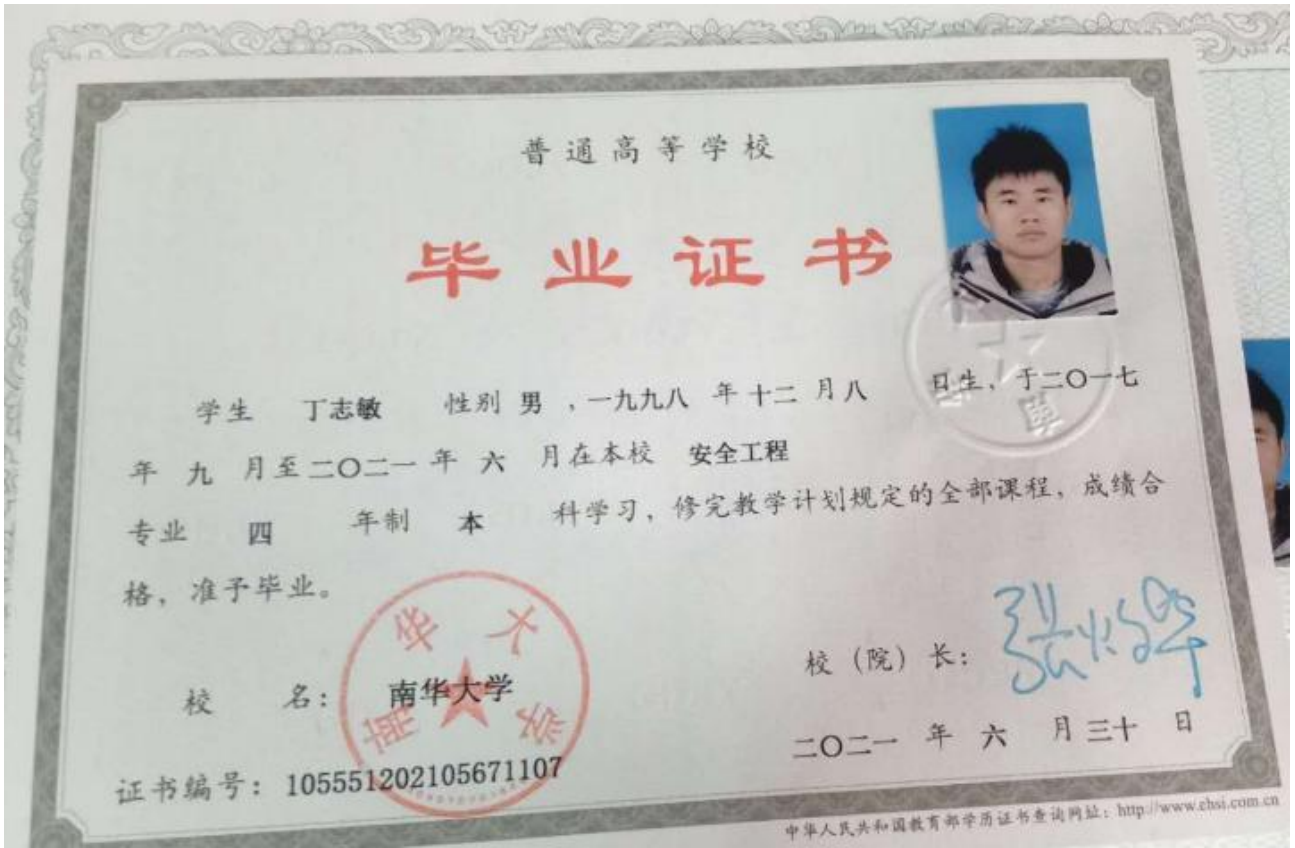 普通高等学校
毕业证书
学生 丁志敏 性别 男 ,一九九八 年 十二 月 八 日生，于二〇一七
年 九 月至 二〇二一 年 六 月在本校 安全工程
专业 四 年制 本 科学习，修完教学计划规定的全部课程，成绩合
格，准予毕业。
校 名： 南华大学
南华大学
校（院）长：
证书编号：105551202105671107
二〇二一 年 六 月 三十 日
中华人民共和国教育部学历证书查询网址：http://www.chsi.com.cn